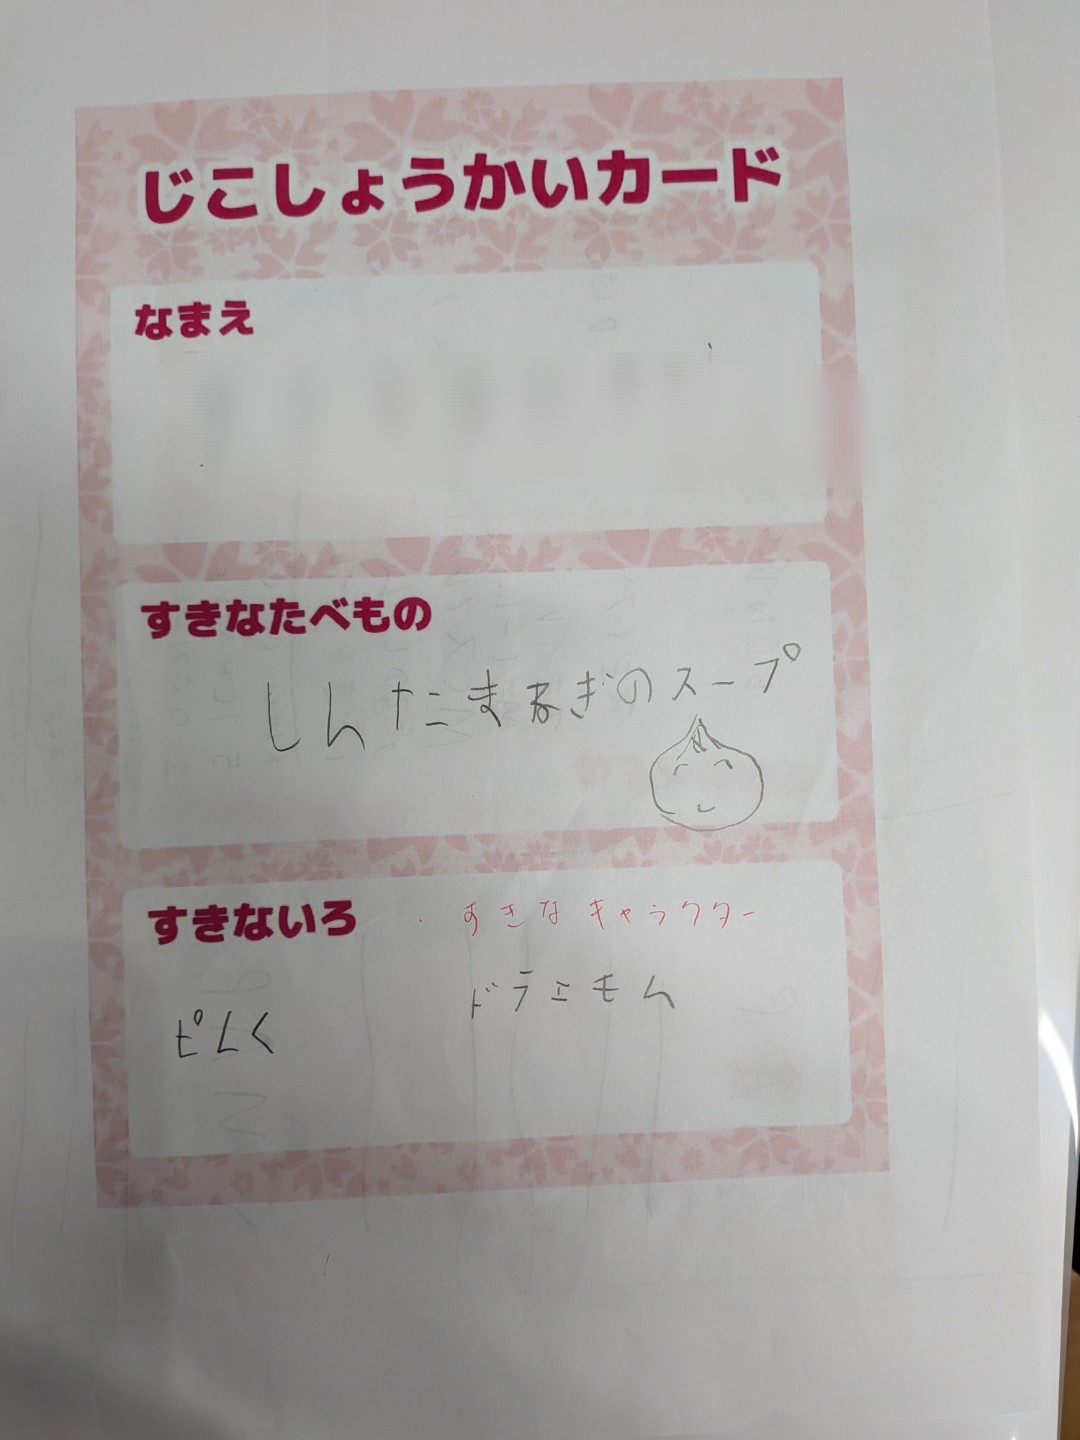 じこしょうかいカード
なまえ
すきなたべもの
しんたまねぎのスープ
すきないろ
すきなキャラクター
ドラエもん
ピんく